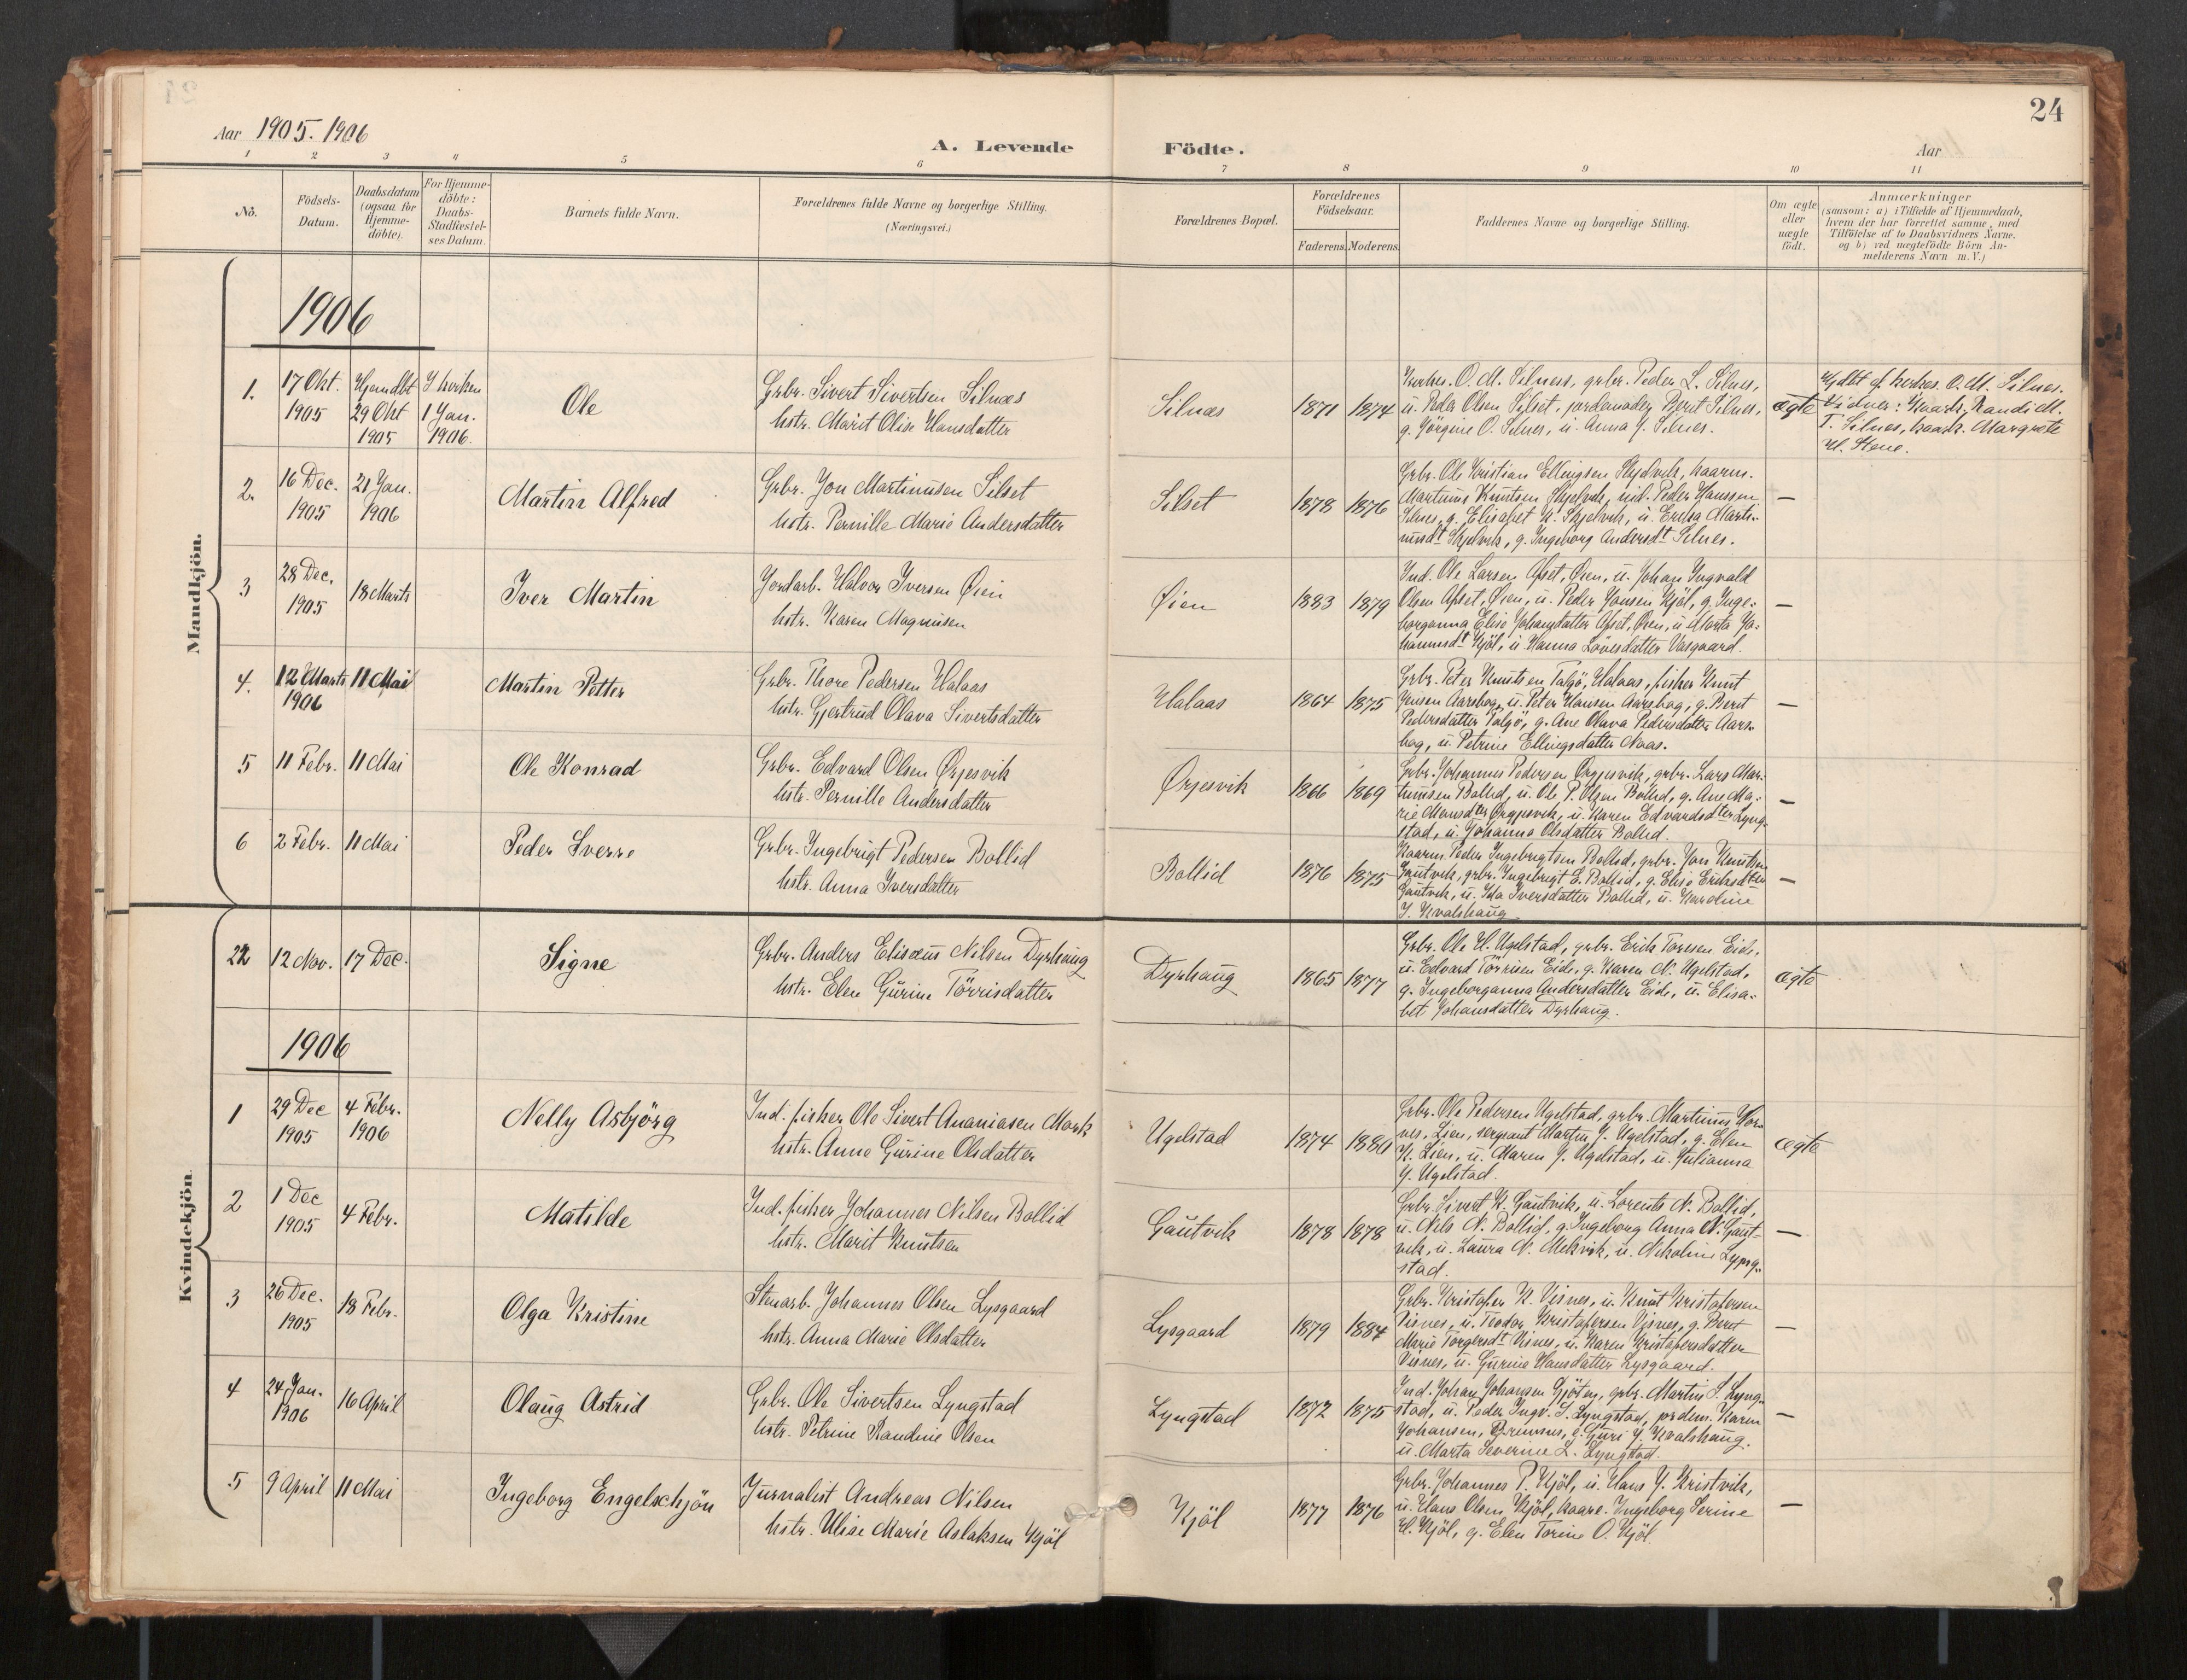 24
Aar 1905. 1906
A. Levende Födte.
Aar
1 2 3 4 5 6 7 8 9 10 11
Nö.
Födsels-
Datum.
Daabsdatum
(ogsaa for
Hjemme-
döbte).
For Hjemme-
döbte:
Daabs-
Stadfæstel-
ses Datum.
Barnets fulde Navn.
Forældrenes fulde Navne og borgerlige Stilling.
(Næringsvei.)
Forældrenes Bopæl.
Forældrenes
Födselsaar.
Faderens. Moderens.
Faddernes Navne og borgerlige Stilling.
Om ægte
eller
uægte
födt.
Anmærkninger
(saasom: a) i Tilfælde af Hjemmedaab,
hvem der har forrettet samme, med
Tilföielse af to Daabsvidners Navne,
og b) ved uægtefödte Börn An-
melderens Navn m. V.)
Mandkjön.
1906
1.
17 Okt.
1905
Hjemdbt
29 Okt
1905
I kirken
1 Jan.
1906.
Ole
Grbr. Sivert Sivertsen Silnæs
hstr. Marit Olise Hansdatter
Silnæs
1871 1874
Kirkes. O. M. Silness, grbr. Peder L. Silnes,
u. Peder Olsen Silset, jordemoder Berit Silnes,
g. Jörgine O. Silnes, u. Anna J. Silnes.
ægte
Hjdbt af kirkes. O. M. Silnes.
Vidner: Kaark. Randi M.
T. Silnes, kaark. Margrete
H. Stene.
2.
16 Dec.
1905
21 Jan.
1906
Martin Alfred
Grbr. Jon Martinusen Silset
hstr. Pernille Marie Andersdatter
Silset
1878 1876
Grbr. Ole Kristian Ellingsen Skjelvik, kaarm.
Martinus Knutsen Skjelvik, ind. Peder Hanssen
Silnes, g. Elisabet K. Skjelvik, u. Ericka Marti-
nusdt Skjelvik, g. Ingeborg Andersdt Silnes.
—
3
28 Dec.
1905
18 Marts
Iver Martin
Jordarb. Halvor Iversen Øien
hstr. Karen Magnusen
Øien
1883 1879
Ind. Ole Larsen Ofset, Øien, u. Johan Ingvald
Olsen Ofset, Øien, u. Peder Jonsen Kjöl, g. Inge-
borganna Elise Johansdatter Ofset, Øien, u. Marta Jo-
hannesdt Kjöl, u. Hanna Lövesdatter Vasgaard.
—
4.
12 Marts
1906
11 Mai
Martin Petter
Grbr. Thore Pedersen Halaas
hstr. Gjertrud Olava Sivertsdatter
Halaas
1864 1875
Grbr. Peter Knutsen Talgö, Halaas, fisker Knut
Jensen Aarsbog, u. Peter Hansen Aarsbog, g. Berit
Pedersdatter Talgö, g. Ane Olava Pedersdatter Aars-
bog, u. Petrine Ellingsdatter Naas.
—
5
11 Febr.
11 Mai
Ole Konrad
Grbr. Edvard Olsen Ørjesvik
hstr. Pernille Andersdatter
Ørjesvik
1866 1869
Grbr. Johannes Pedersen Ørgjesvik, grbr. Lars Mar-
tinusen Bollid, u. Ole P. Olsen Bollid, g. Ane Ma-
rie Monsdter Ørgjesvik, u. Karen Edvardsdter Lyng-
stad, u. Johanna Olsdatter Bollid.
—
6
2 Febr.
11 Mai
Peder Sverre
Grbr. Ingebrigt Pedersen Bollid
hstr. Anna Iversdatter
Bollid
1876 1875
Kaarm. Peder Ingebrigtsen Bollid, grbr. Jon Knutsen
Gautvik, grbr. Ingebrigt E. Bollid, g. Elise Eriksdter
Gautvik, u. Ida Iversdatter Bollid, u. Karoline
J. Kvalshaug
—
Kvindekjön
22
12 Nov.
17 Dec.
Signe
Grbr. Anders Elisæus Nilsen Dyrhaug
hstr. Elen Gurine Törrisdatter
Dyrhaug
1865 1877
Grbr. Ole H. Ugelstad, grbr. Erik Toresen Eide,
u. Edvard Törrisen Eide, g. Karen N. Ugelstad,
g. Ingeborganna Andersdatter Eide, u. Elisa-
bet Johansdatter Dyrhaug.
ægte
1906
1
29 Dec
1905
4 Febr.
1906
Nelly Asbjörg
Ind. fisker Ole Sivert Ananiasen Mork
hstr. Anne Gurine Olsdatter
Ugelstad
1874 1880
Grbr. Ole Pedersen Ugelstad, grbr. Martinus Hor-
nes, Lien, sergeant Martin J. Ugelstad, g. Elen
K. Lien, u. Maren J. Ugelstad, u. Julianna
J. Ugelstad.
ægte
2
1 Dec
1905
4 Febr.
Matilde
Ind. fisker Johannes Nilsen Bollid
hstr. Marit Knutsen
Gautvik
1878 1878
Grbr. Sivert K. Gautvik, u. Lorents N. Bollid,
u. Nils N. Bollid, g. Ingeborg Anna N. Gaut-
vik, u. Laura N. Mekvik, u. Nikoline Lyng-
stad.
—
3
26 Dec.
1905
18 Febr.
Olga Kristine
Stenarb. Johannes Olsen Lysgaard
hstr. Anna Marie Olsdatter
Lysgaard
1879 1884
Grbr. Kristofer K. Visnes, u. Knut Kristofersen
Visnes, u. Teodor Kristofersen Visnes, g. Berit
Marie Torgersdt Visnes, u. Karen Kristofersdatter
Visnes, u. Gurine Hansdatter Lysgaard.
—
4
24 Jan.
1906
16 April
Olaug Astrid
Grbr. Ole Sivertsen Lyngstad
hstr. Petrine Randine Olsen
Lyngstad
1872 1875
Ind. Johan Johansen Gjöten, grbr. Martin S. Lyng-
stad, u. Peder Ingv. S. Lyngstad, jordem. Karen
Johansen, Bremsnes, g. Guri J. Kvalshaug.
u. Marta Severine L. Lyngstad.
—
5
9 April
11 Mai
Ingeborg Engelschjön
Jurnalist Andreas Nilsen
hstr. Ulise Marie Aslaksen Kjöl
Kjöl
1877 1876
Grbr. Johannes P. Kjöl, u. Hans J. Kristvik,
u. Hans Olsen Kjöl, kaare. Ingeborg Serine
H. Kjöl, g. Elen Torine O. Kjöl.
—